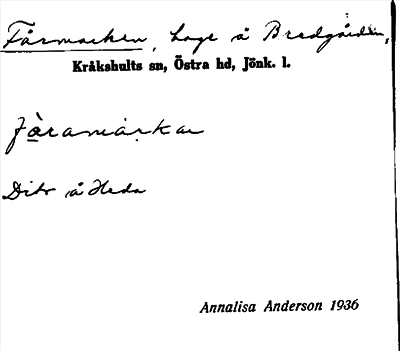 Fårmarken, hage å Bredgården,
Kråkshults sn, Östra hd, Jönk. l.
fåramarkar
Dito å Heda
Annalisa Anderson 1936